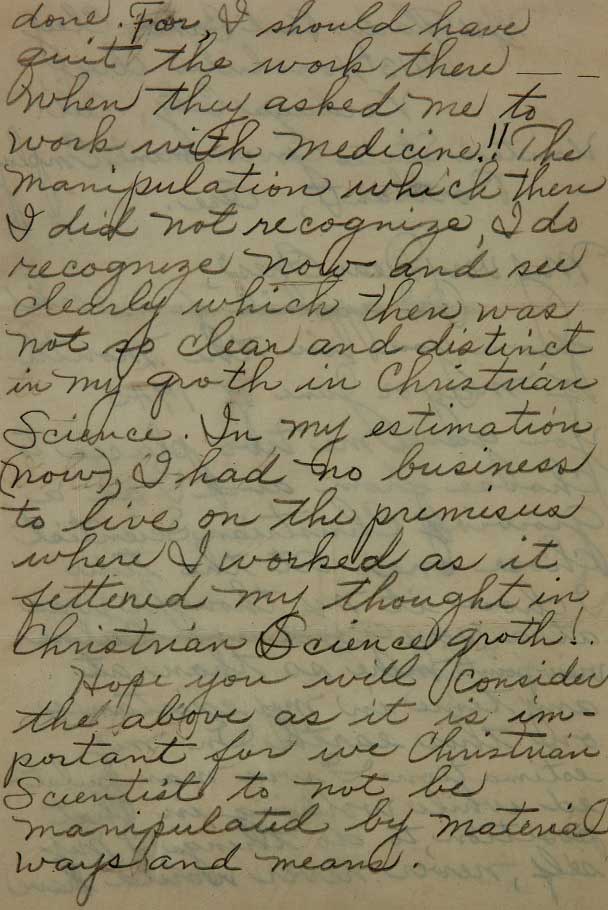 done. For, I should have
quit the work there _ _ _
when they asked me to
work with medicine!! The
manipulation which then
I did not recognize, I do
recognize now and see
clearly which then was
not so clear and distinct
in my groth in Christian
Science. In my estimation
(now), I had no business
to live on the premisus
where I worked as it
fettered my thought in
Christian Science groth!
Hope you will consider
the above as it is im-
portant for we Christian
Scientist to not be
manipulated by material
ways and means.